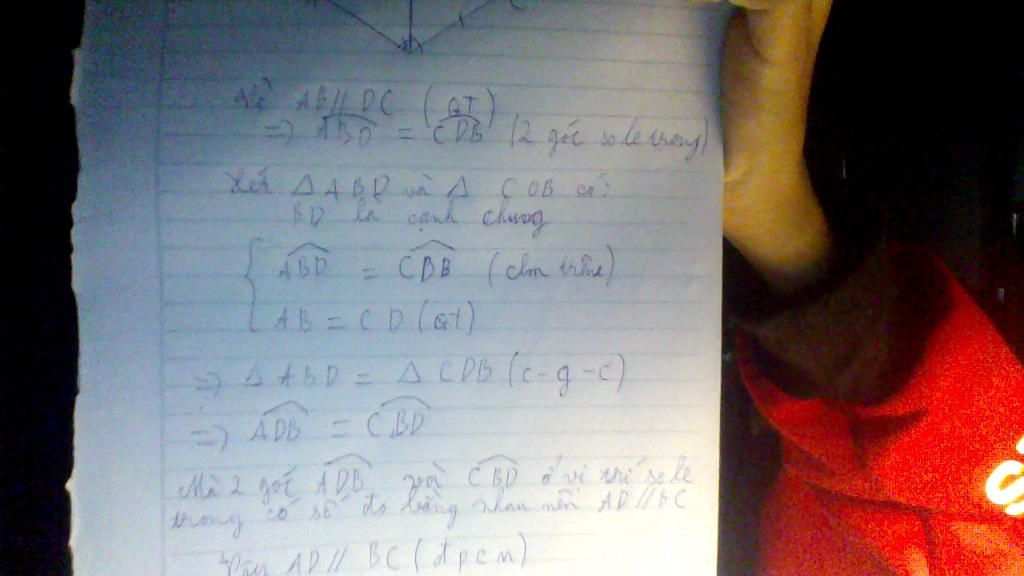 Vì AB // DC (GT)
=> ABD = CDB (2 góc so le trong)
Xét Δ ABD và Δ CDB có:
BD là cạnh chung
ABD = CDB (cm trên)
AB = CD (GT)
=> Δ ABD = Δ CDB (c-g-c)
=> ADB = CBD
Mà 2 góc ADB và CBD ở vị trí so le
trong có số đo bằng nhau nên AD // BC
Vậy AD // BC (đpcm)